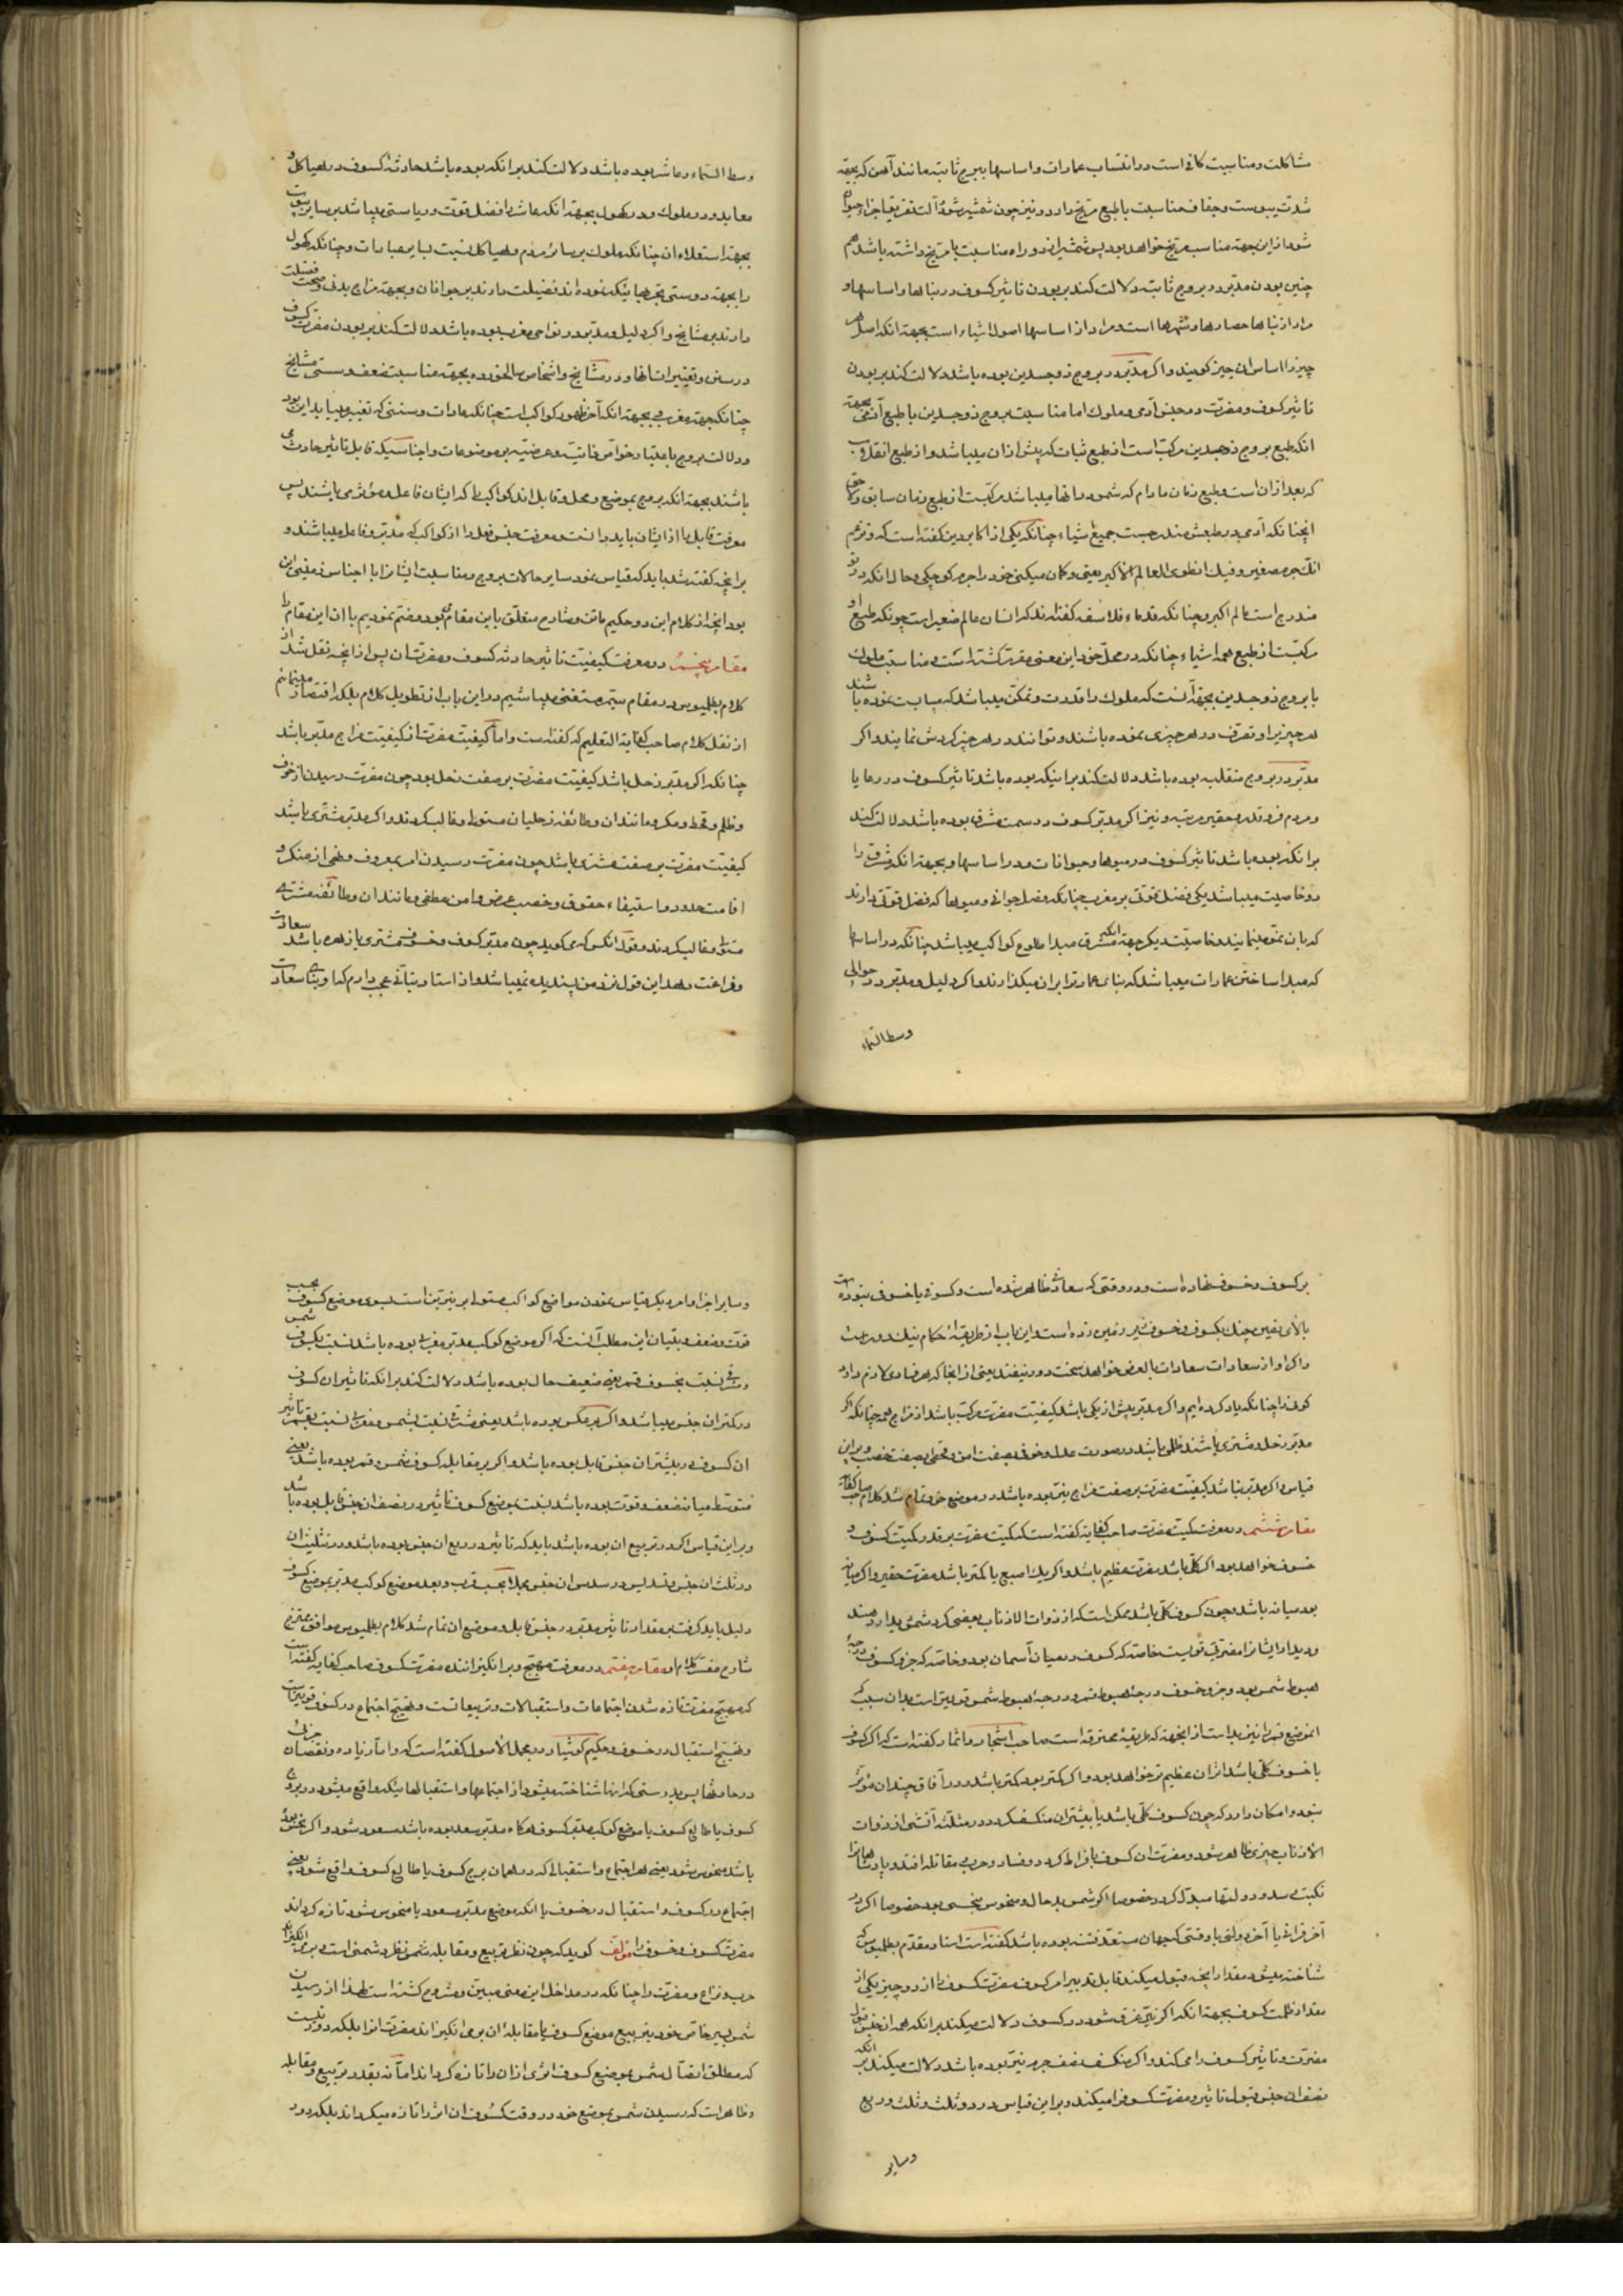 مشاکلت و مناسبت کافی است و در انتساب عمارات و اساسها ببروج ثابته مانند آهن که بجهة
شدت یبوست و جفاف مناسبت باطبع مریخ دارد و نیز چون شمشیر شود آلت تفریق اجزاء حیوان
شود از این جهة مناسب مریخ خواهد بود پس شمشیر از دو راه مناسبت با مریخ داشته باشد هم
چنین بودن مدبر در بروج ثابته دلالت کند بر بودن تاثیر کسوف در بناها و اساسها و
مراد از بناها حصارها و شهرها است و مراد از اساسها اصول اشیاء است بجهة انکه اصل هر
چیز را اساس ان چیز گویند و اکر مدبر در بروج ذوجسدین بوده باشد دلالت کند بر بودن
تاثیر کسوف و مضرت در جنس آدمی و ملوک اما مناسبت بروج ذوجسدین باطبع آدمی بجهة
انکه طبع بروج ذوجسدین مرکب است از طبع ثبات که پیش از ان میباشد و از طبع انقلاب
که بعد از ان است و طبع زمان مادام که شمس در انها میباشد مرکبست از طبع زمان سابق و لاحق
انچنانکه آدمی در طبعش مندرجست جمیع اشیاء چنانکه یکی از اکابر دین کفته است که و تزعم
انک جرم صغیر و فیک انطوی العالم الاکبر یعنی و کمان میکنی خود را جرم کوچکی و حال انکه در تو
مندرج است عالم اکبر و چنانکه قدماء فلاسفه کفته اند که انسان عالم صغیر است چونکه طبع او
مرکبست از طبع همه اشیاء چنانکه در محل خود این معنی مقرر کشته است و مناسبت ملوک
با بروج ذوجسدین بجهة آنست که ملوک را قدرت و تمکن میباشد که مناسبت نموده باشند
هر چیز برا و تصرف در هر چیزی نموده باشند و توانند در هر چیز کردش نمایند و اکر
مدبر در بروج منقلبه بوده باشد دلالت کند بر اینکه بوده باشد تاثیر کسوف در رعایا
و مردم فرو قدر و حقیر مرتبه و نیز اکر مدبر کسوف در سمت مشرق بوده باشد دلالت کند
بر انکه بوده باشد تاثیر کسوف در میوها و حیوانات و در اساسها و بجهة انکه مشرق را
دو خاصیت میباشد یکی فضل قوتی بر مغرب چنانکه فضل جوانی و میوها که فضل قوتی دارند
که بان نمو مینمایند و خاصیت دیکر جهة انکه مشرق مبدا طلوع کواکب میباشد چنانکه در اساسها
که مبدا ساختن عمارات میباشد که بنای عمارت را بر ان میکذارند و اکر دلیل و مدبر در حوالی
وسط السماء
وسط السماء و عاشر بوده باشد دلالت کند بر انکه بوده باشد حادثه کسوف در هیاکل و
معابد و در ملوک و در کهول بجهة انکه عاشر را فضل قوت و ریاستی میباشد بر سایر بیوت
بجهة استعلاء ان چنانکه ملوک بر سایر مردم و هیاکل نسبت بسایر عبادات و چنانکه کهول
را بجهة دوستی تجربهائیکه نموده اند فضیلت دارند بر جوانان و بجهة مزاج بدنی و صحت فضیلت
دارند بر مشایخ و اکر دلیل و مدبر در نواحی مغرب بوده باشد دلالت کند بر بودن مضرت کسوف
در سنن و تغییر انسانها و در مشایخ و اشخاص سالخورده بجهة مناسبت ضعف و سستی مشایخ
چنانکه جهة مغرب بجهة انکه آخر ظهور کواکب است چنانکه عادات و سننی که تغییر مییابد این بود
و دلالت بروج باعتبار خواص ذاتیه و عرضیه بر موضوعات و اجناسیکه قابل تاثیر حادث می
باشند بجهة انکه بروج بموضع و محل و قابل اند کواکب را که ایشان فاعل و مؤثر می باشند پس
معرفت قابل را از ایشان باید دانست و معرفت جنس فعل را از کواکب که مدبر و فاعل میباشند و
بر انچه کفته شد باید که قیاس نمود سایر حالات بروج و مناسبت ایشانرا با اجناس زمینی این
بود انچه از کلام این دو حکیم ماتن و شارح متعلق باین مقام بود و ختم نمودیم با ان این مقام را
مقام پنجم در معرفت کیفیت تاثیر حادثه کسوف و مضرت ان پس از انچه نقل شد از
کلام بطلمیوس در مقام سیم مستغنی میباشیم در این باب از تطویل کلام بلکه اقتصار مینمائیم
از نقل کلام صاحب کفایة التعلیم که کفته است و اما کیفیت مضرت از کیفیت مزاج مدبر باشد
چنانکه اکر مدبر زحل باشد کیفیت مضرت بر صفت زحل بود چون مضرت رسیدن از خوف
و ظلم و قحط و مکر و مانند ان و طائفه زحلیان مسلط و غالب کردند و اکر مدبر مشتری باشد
کیفیت مضرت بر صفت مشتری باشد چون مضرت رسیدن امر بمعروف و نهی از منکر و
اقامت حدود و استیفاء حقوق و خصب عرض و امن عظمی و مانند ان و طائفه مشتری
مستولی و غالب کردند و قول انکس که می کوید چون مدبر کسوف و خسوف مشتری یا زهره باشد سعادت
و فراغت دهد این قول نزد من پسندیده نمیباشد و از استاد بتانی عجب دارم که او بنای سعادت
بر کسوف و خسوف نهاده است و در وقتی که سعادت ظاهر شده است و کسوفی یا خسوفی نبوده
بالای یقین چنک بکسوف و خسوف زیر زمین زده است و این باب از طریقهٔ احکام نیک دور است
و اکر او از سعادات سعادات بالعرض خواهد سخت دور نیفتد یعنی از انجا که هر فسادی لازم دارد
کون را چنانکه یاد کرده ایم و اکر مدبر بیش از یکی باشد کیفیت مضرت مرکب باشد از مزاج همه چنانکه اکر
مدبر زحل و مشتری باشند ظلمی باشد در صورت عدل و خوفی بصفت امن و قحطی بصفت خصب و بر این
قیاس و اکر مدبر نباشد کیفیت مضرت بر صفت مزاج نیر بوده باشد در موضع خود تمام شد کلام صاحب کفایه
مقام ششم در معرفت کمیت مضرت صاحب کفایه کفته است که کمیت مضرت بر قدر کمیت کسوف و
خسوف خواهد بود اکر کلی باشد مضرت عظیم باشد و اکر یک اصبع یا کمتر باشد مضرت حقیر و اکر میانه
بود میانه باشد و چون کسوف کلی باشد ممکن است که از ذوات الاذناب بعضی کرد شمس پدید آیند
و دیدار ایشانرا مضرتی قویست خاصه که کسوف در میان آسمان بود و خاصه که جزو کسوف درجهٔ
هبوط شمس بود و جزو خسوف درجهٔ هبوط قمر و درجهٔ هبوط شمس قویتر است بدان سبب که
انموضع قمر را نیز بد است از انجهة که طریقهٔ محترقه است صاحب اشجار و اثمار کفته است که اکر کسوف
یا خسوف کلی باشد اثر ان عظیم تر خواهد بود و اکر کمتر بود کمتر باشد و در آفاق چندان مؤثر
نبود و امکان دارد که چون کسوف کلی باشد یا بیشتر ان منکسف کردد در مثلثه آتشی از ذوات
الاذناب چیزی ظاهر شود و مضرت ان کسوف بافراط کردد و فساد و حرب و مقاتله افتد و پادشاهانرا
نکبت رسد و دولتها مبدل کردد خصوصا اکر شمس بد حال و منحوس بنحسی بود خصوصا اکر در
آخر قرانی یا آخر دولتی یا وقتی که جهان مستعد فتنه بوده باشد کفته است استاد مقدم بطلمیوس که
شناخته میشود مقدار انچه قبول میکند قابل تدبیر امر کسوف مضرت کسوف را از دو چیز یکی از
مقدار ظلمت کسوف بجهة انکه اکر نیر غرق شود در کسوف دلالت میکند بر انکه همه ان جنس قبول
مضرت و تاثیر کسوف را می کند و اکر منکسف نصف جرم نیر بوده باشد دلالت میکند بر انکه
نصف ان جنس قبول تاثیر و مضرت کسوف را میکند و بر این قیاس در دو ثلث و ثلث و ربع
وسایر
و سایر اجزا و امر دیکر قیاس نمودن مواضع کواکب مستولی بر نیرین است بسوی موضع کسوف بحسب
قوت و ضعف و بیان این مطلب آنست که اکر موضع کوکب مدبر مغربی بوده باشد نسبت بکسوف شمس
و شرقی نسبت بخسوف قمر یعنی ضعیف حال بوده باشد دلالت کند بر انکه تاثیر ان کسوف
در کمتر ان جنس میباشد و اکر بر عکس بوده باشد یعنی مشرقی نسبت بشمس و مغربی نسبت بقمر تاثیر
ان کسوف در بیشتر ان جنس قابل بوده باشد و اکر بر مقابله کسوف شمس و قمر بوده باشد یعنی
متوسط میانه ضعف و قوت بوده باشد نسبت بموضع کسوف تاثیر در نصف ان جنس قابل بوده باشد
و بر این قیاس اکر در تربیع ان بوده باشد باید که تاثیر در ربع ان جنس بوده باشد و در تثلیث ان
در ثلث ان جنس و تسدیس در سدس ان جنس مجملا بحسب قرب و بعد موضع کوکب مدبر بموضع کسوف
دلیل باید کرفت بر مقدار تاثیر مدبر در جنس قابل و موضع ان تمام شد کلام بطلمیوس موافق شرح
شارح مفسر کلام او مقام هفتم در معرفت مهیج و بر انکیزاننده مضرت کسوف صاحب کفایه کفته است
که مهیج مضرت تازه شدن اجتماعات و استقبالات و تربیعاتست و تهییج اجتماع در کسوف قویتر است
و تهییج استقبال در خسوف و حکیم کوشیار در مجمل الاصول کفته است که و اما زیاده و نقصان جزئی
در حادثها پس بدرستی که انها شناخته میشود از اجتماعها و استقبالها بیکه واقع میشود در بروج
کسوف یا طالع کسوف یا موضع کوکب مدبر کسوف هرکاه مدبر سعد بوده باشد مسعود شود و اکر نحس بوده
باشد منحوس شود یعنی هر اجتماع و استقبالی که در همان برج کسوف یا طالع کسوف واقع شود یعنی
اجتماع در کسوف و استقبال در خسوف یا انکه موضع مدبر مسعود یا منحوس شود تازه کرداند
مضرت کسوف و خسوف را مؤلف کوید که چون نظر تربیع و مقابله شمس نظر دشمنی است و بر می انکیزاند
حرب و نزاع و مضرت را چنانکه در مداخل این معنی مبین و مشروح کشته است لهذا از رسیدن
شمس بسیر خاص خود بتربیع موضع کسوف یا مقابله ان بر می انکیزاند مضرت انرا بلکه دور نیست
که مطلق اتصال شمس بموضع کسوف اثری از ان را تازه کرداند اما نه بقدر تربیع و مقابله
و ظاهر است که رسیدن شمس بموضع خود در وقت کسوف ان اثر را تازه میکرداند بلکه در